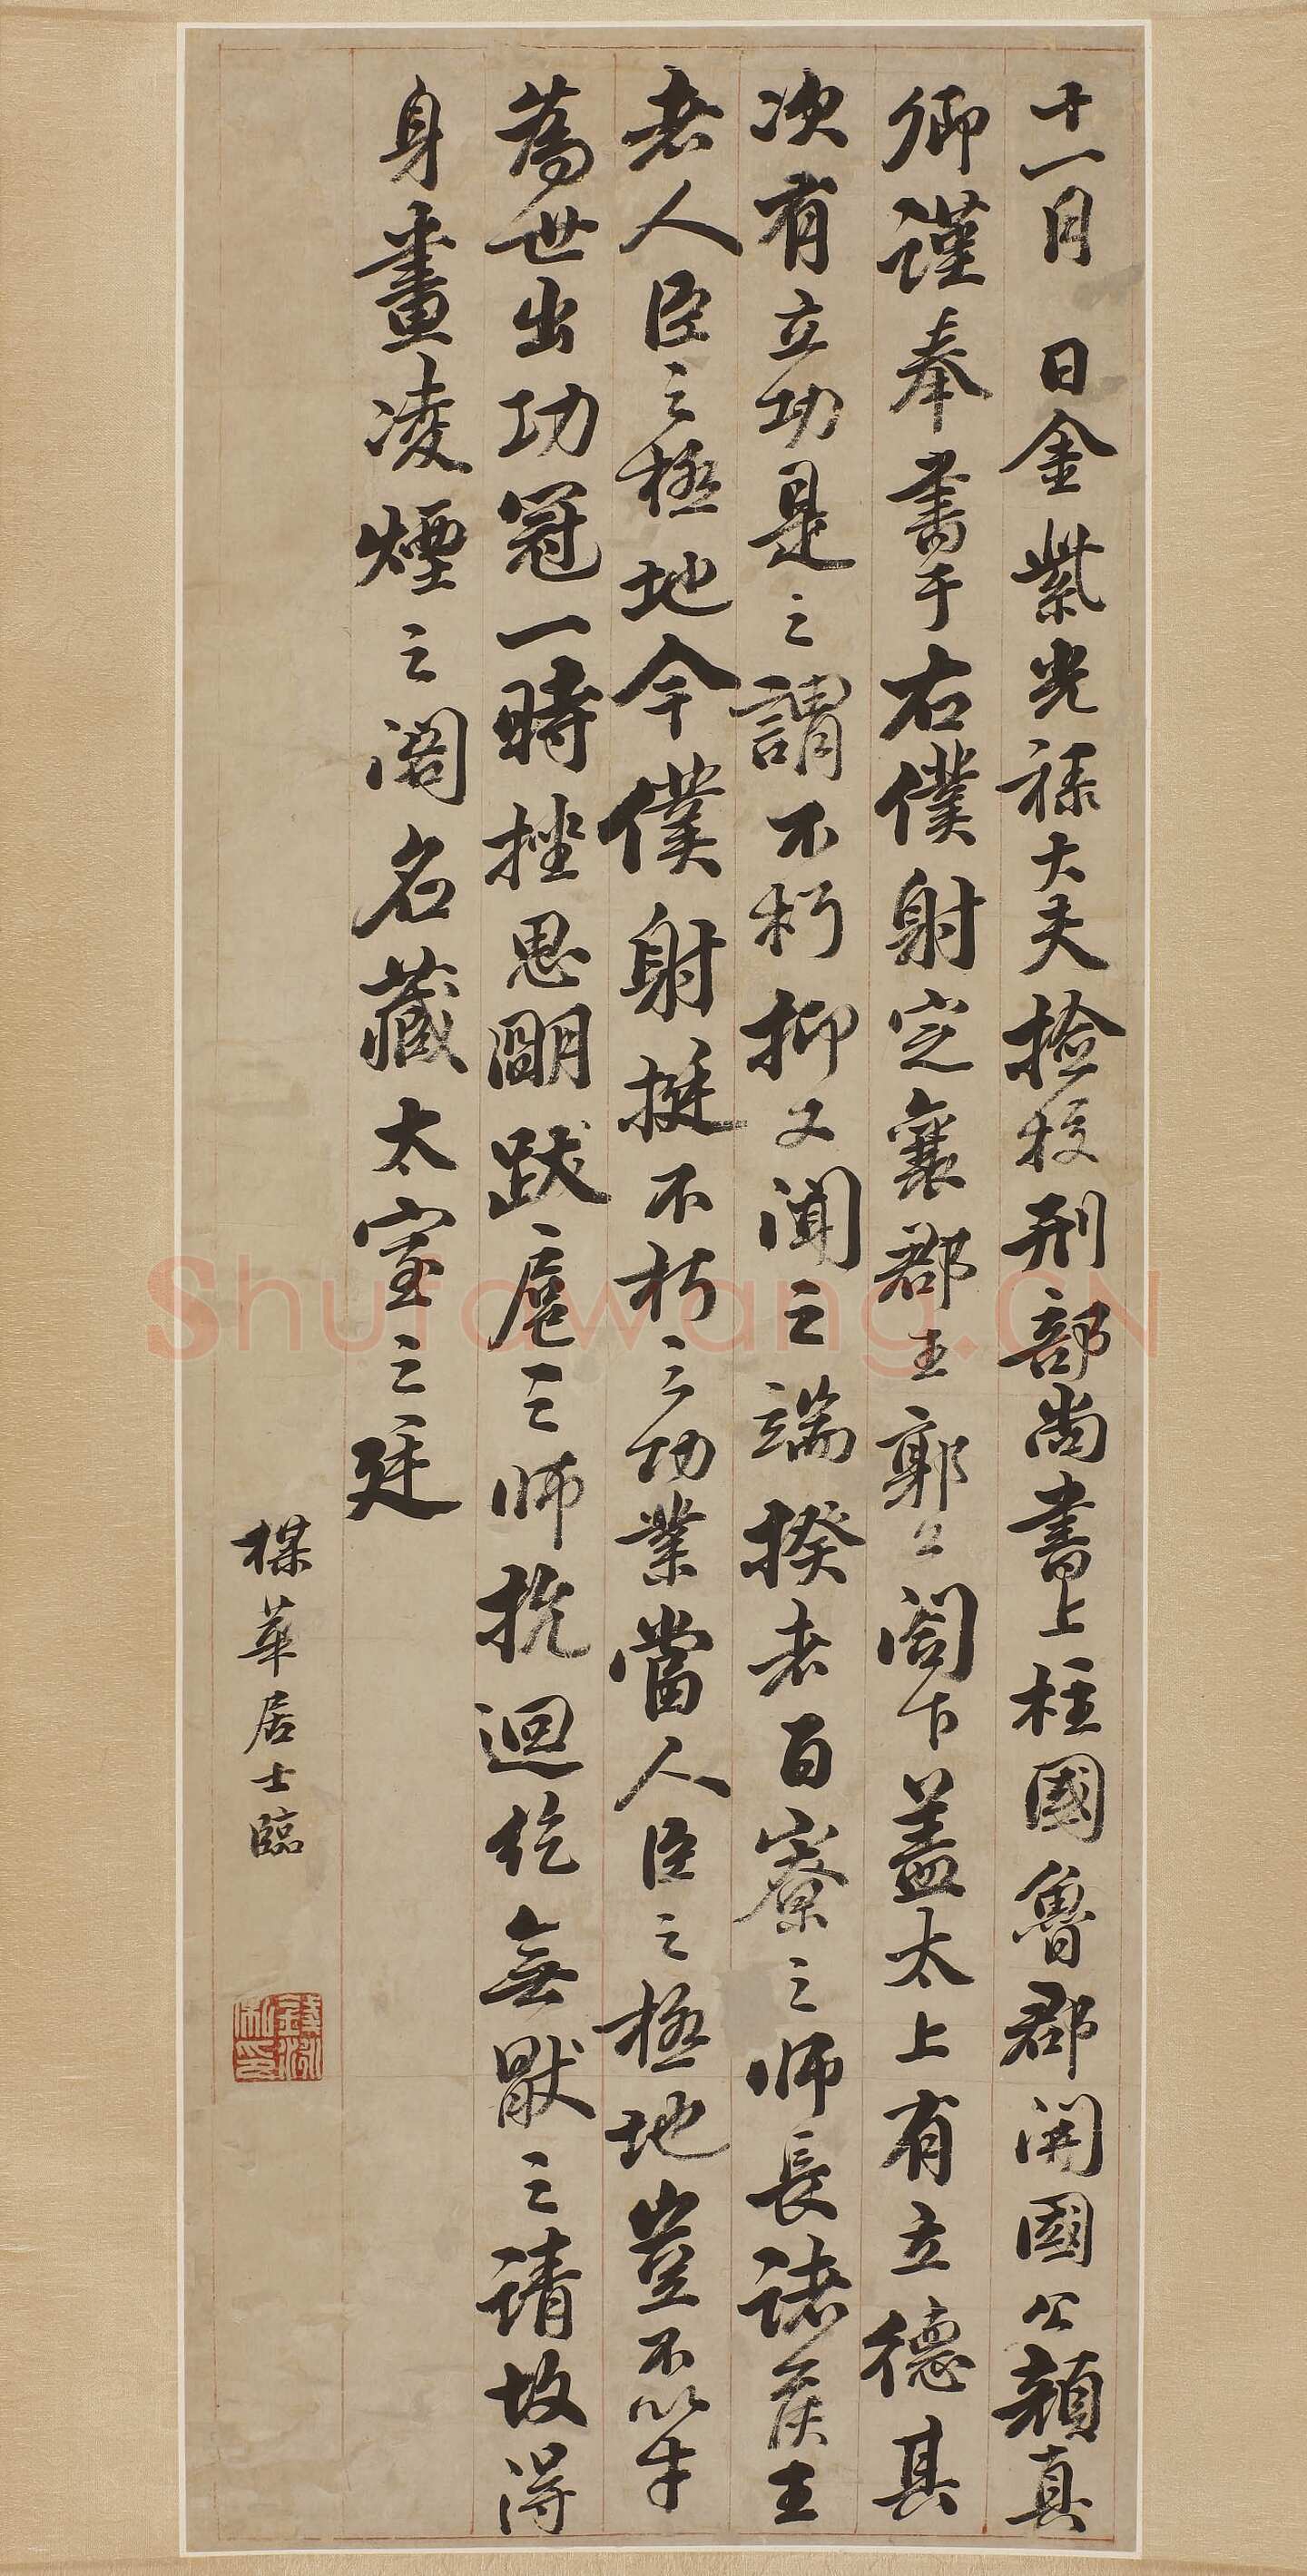 十一月 日金紫光祿大夫撿校刑部尚書上柱國魯郡開國公顏真
卿謹奉書于右僕射定襄郡王郭公閤下蓋太上有立德其
次有立功是之謂不朽抑又聞之端揆者百寮之師長諸侯王
者人臣之極地今僕射挺不朽之功業當人臣之極地豈不以才
為世出功冠一時挫思明跋扈之師抗迴紇無猒之請故得
身畫凌煙之閣名藏太室之廷
楳華居士臨
Shufawang.CN